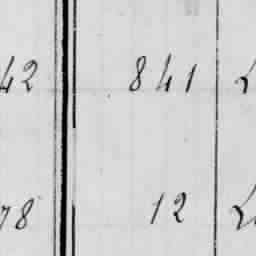 42 841
78 12